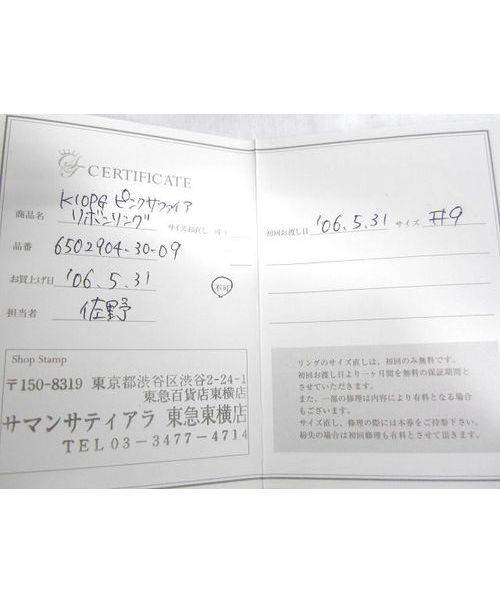 CERTIFICATE
K10PG ピンクサファイア
商品名 リボンリング サイズお直し
品番 6502904-30-09
お買上げ日 '06.5.31 不可
担当者 佐野
Shop Stamp
〒150-8319 東京都渋谷区渋谷2-24-1
東急百貨店東横店
サマンサティアラ 東急東横店
TEL 03-3477-4714
初回お渡し日 '06.5.31 サイズ #9
リングのサイズ直しは、初回のみ無料です。
初回お渡し日より一ヶ月間を無料の保証期間と
させていただきます。
また、一部の修理は内容により有料となる場合
もございます。
サイズ直し、修理の際には本券をご持参下さい。
紛失の場合は初回修理も有料とさせて頂きます。